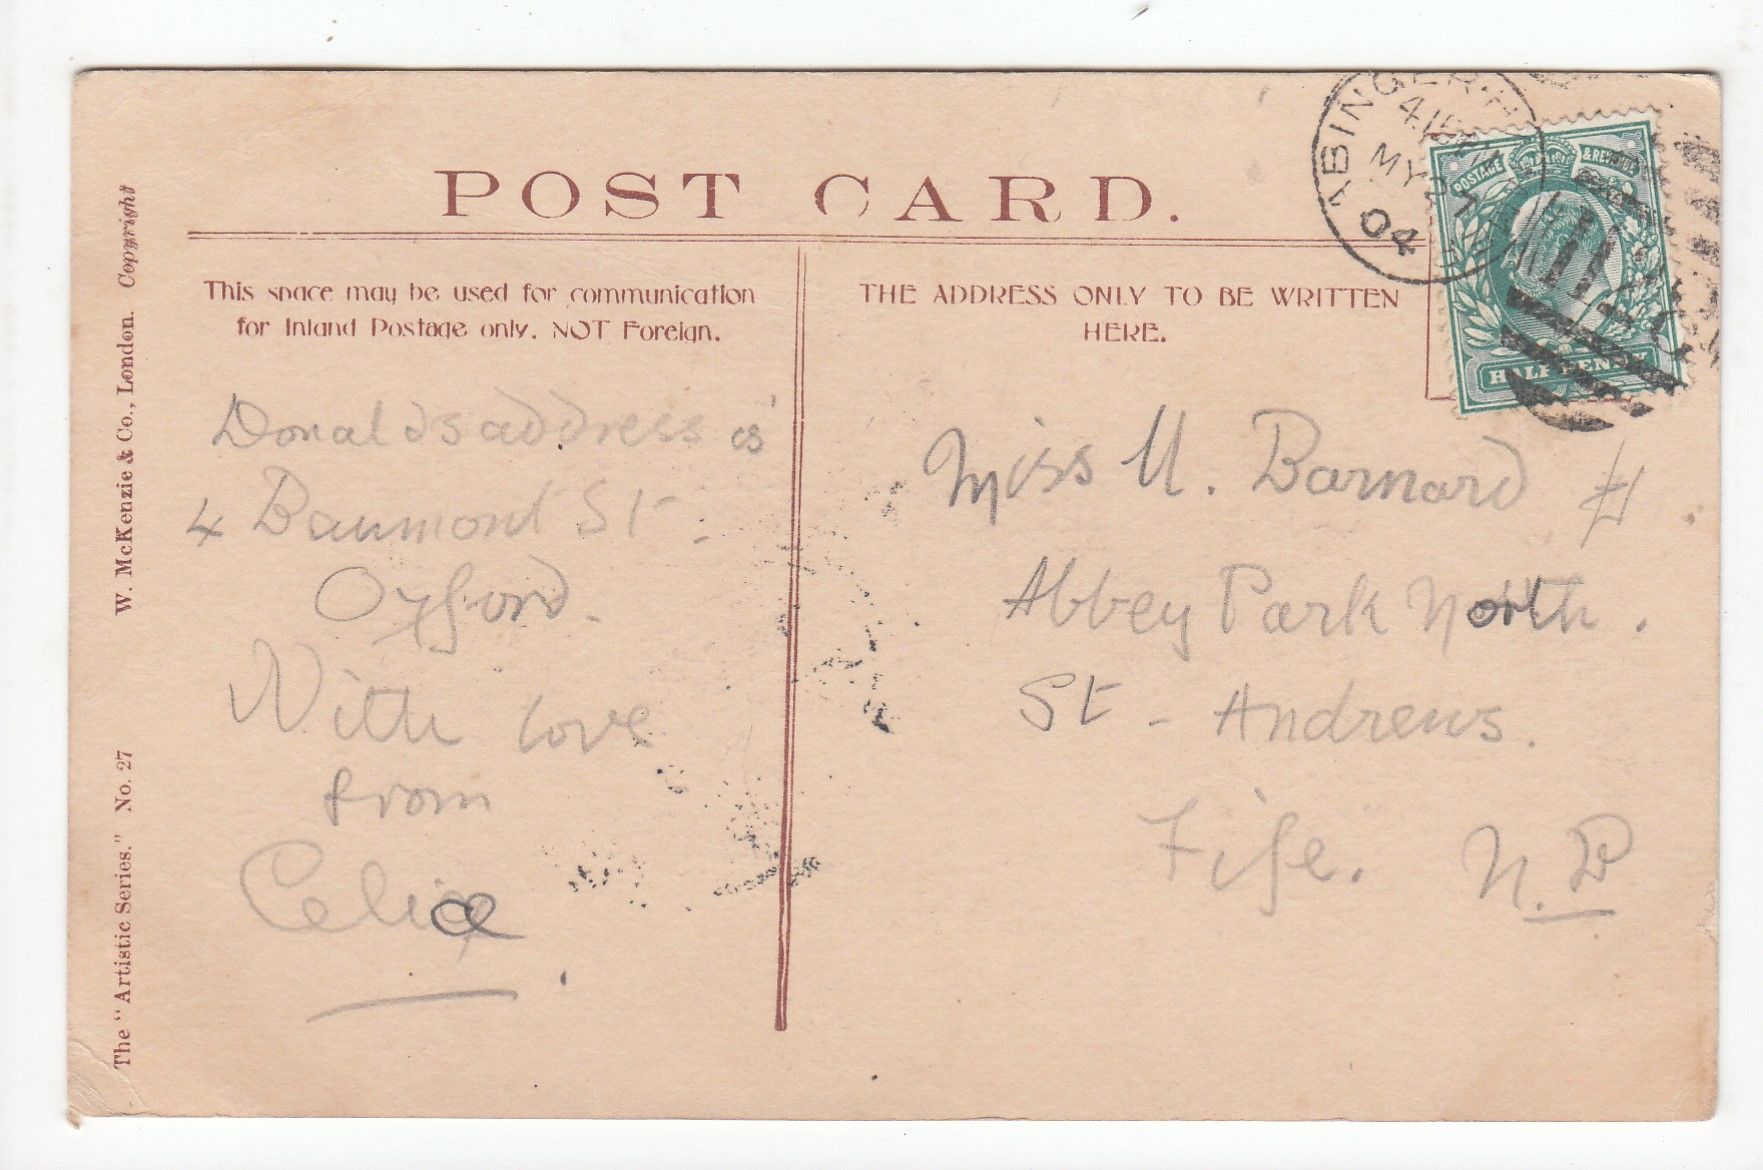 POST CARD.
This space may be used for communication
for Inland Postage only. NOT Foreign.
THE ADDRESS ONLY TO BE WRITTEN
HERE.
W. McKenzie & Co., London. Copyright
The "Artistic Series." No. 27
ABINGER
MY 27
04
POSTAGE & REVENUE
HALF PENNY
Donalds address is
4 Baumont St.
Oxford.
With love
from
Celia
Miss U. Barnard
Abbey Park North.
St - Andrews.
Fife. N.B